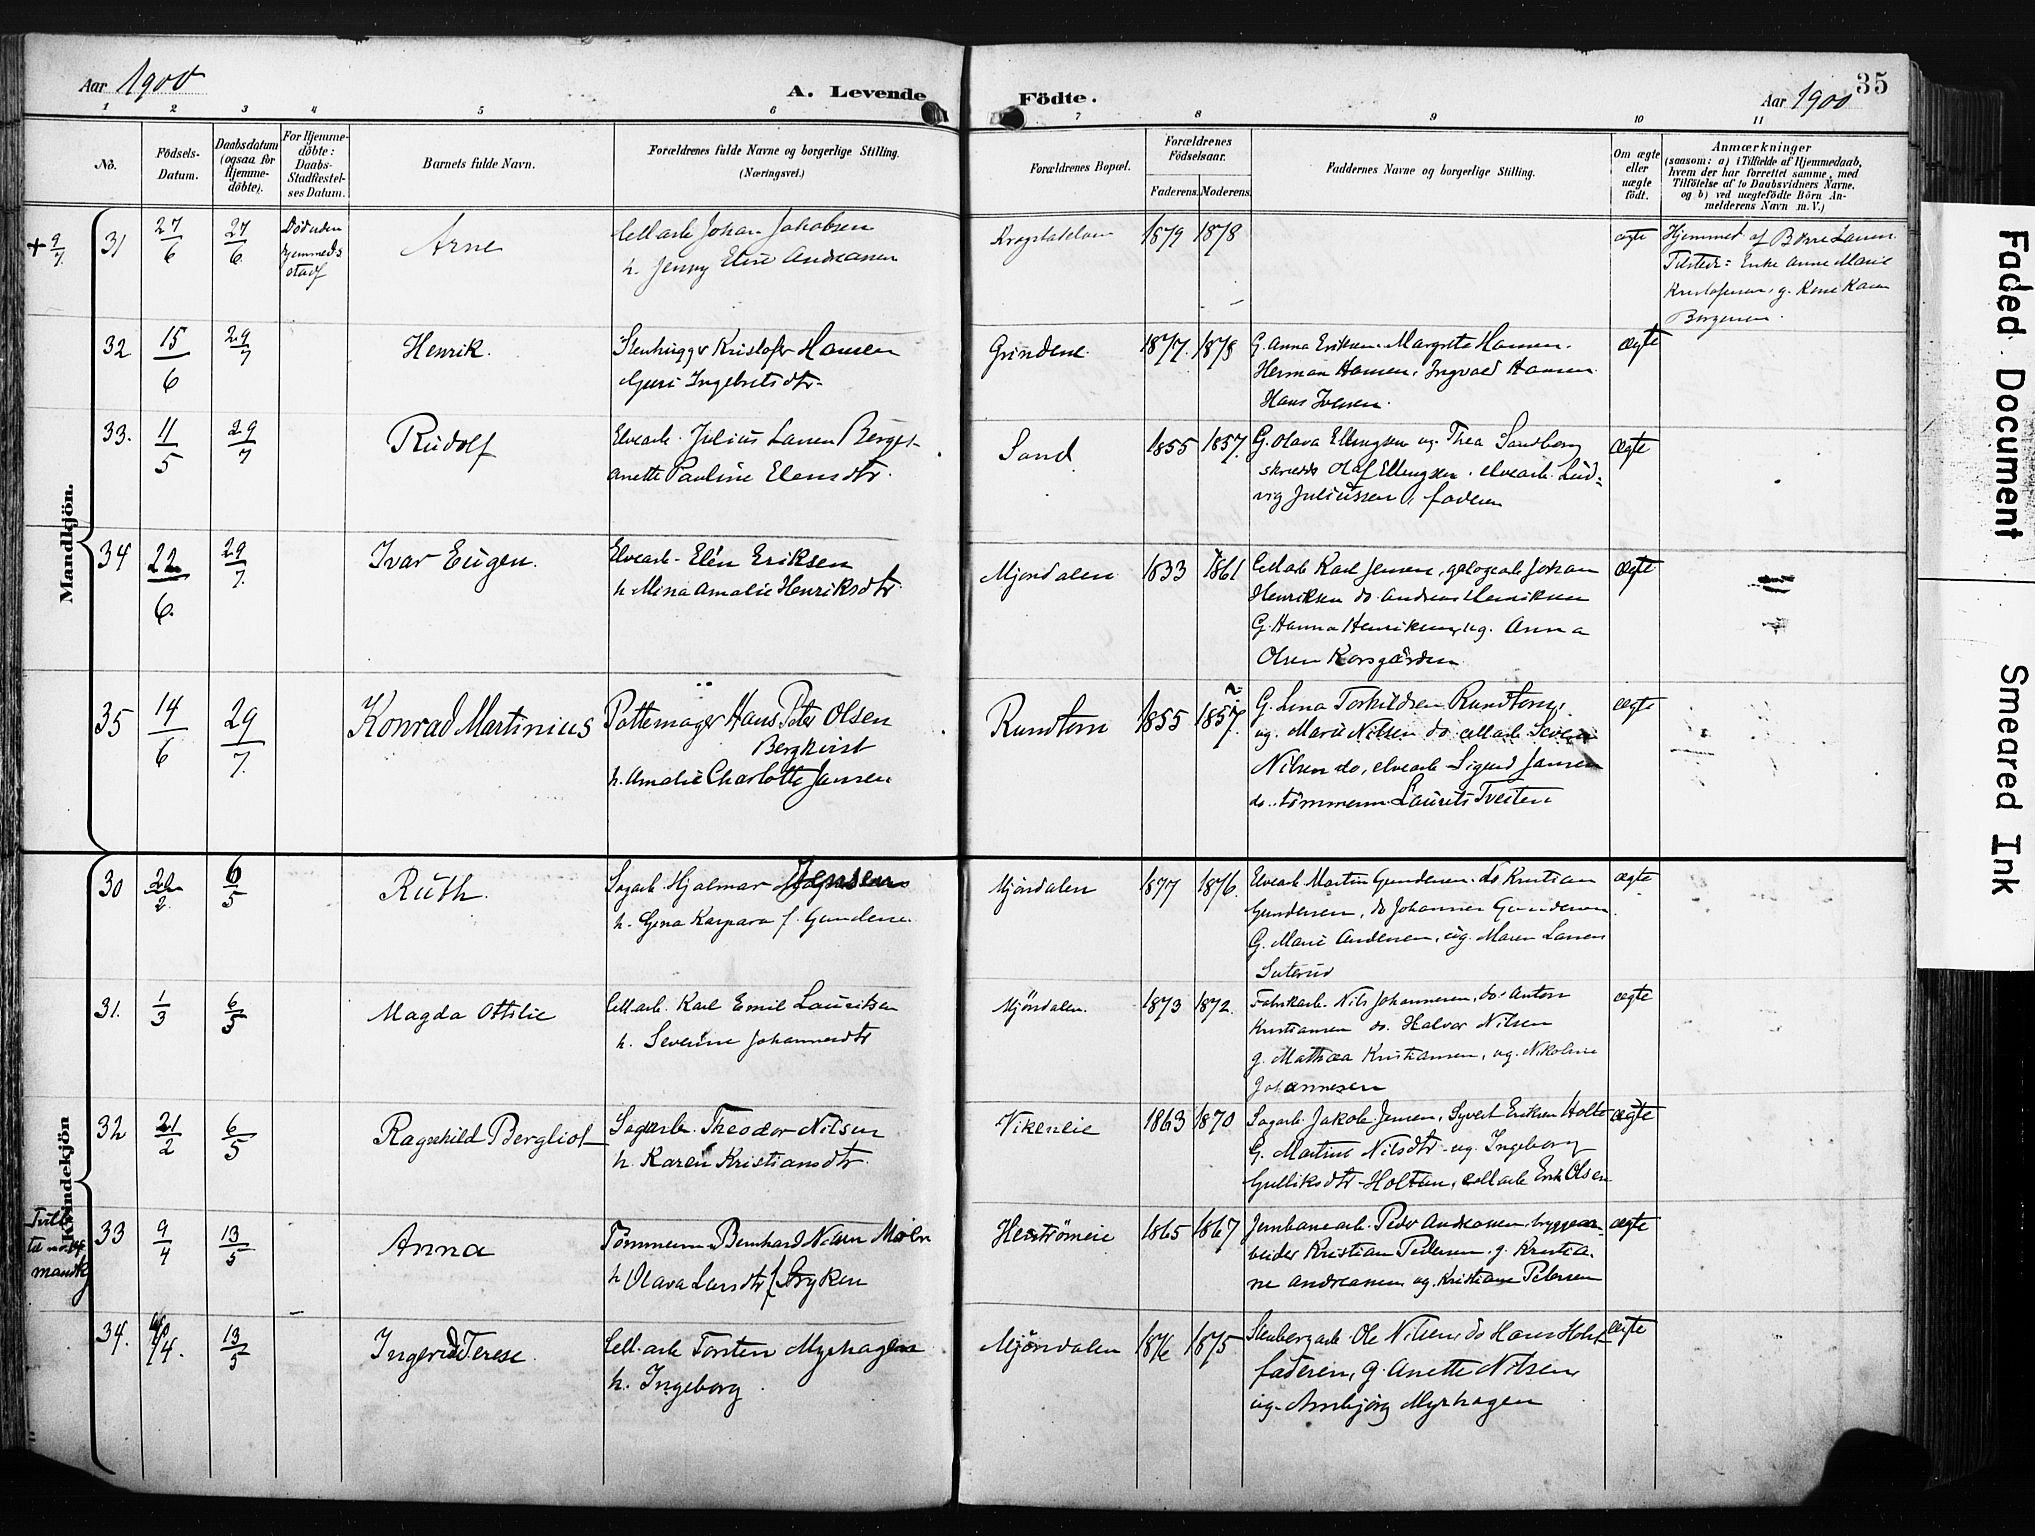 Aar 1900
A. Levende Födte.
Aar 1900
35
1 2 3 4 5 6 7 8 9 10 11
No.
Födsels-Datum.
Daabsdatum (ogsaa for Hjemmedöbte).
For Hjemmedöbte: Daabs-Stadfestelses Datum.
Barnets fulde Navn.
Forældrenes fulde Navne og borgerlige Stilling. (Næringsvei.)
Forældrenes Bopæl.
Forældrenes Födselsaar.
Faderens. Moderens.
Faddernes Navne og borgerlige Stilling.
Om ægte eller uægte födt.
Anmærkninger
(saasom: a) i Tilfælde af Hjemmedaab, hvem der har forrettet samme, med Tilföielse af to Daabsvidners Navne, og b) ved uægtefödte Börn Anmelderens Navn m. V.)
Mandkjön.
+ 9/7 31 27/6 27/6 Död uden hjemmeds stadf Arne
Cell.arb. Johan Jakobsen
h. Jenny Elise Andreasen
1879 1878 ægte
Hjemmed. af Börre Larsen
Tilsted: Enke Anne Marie
g. Kone Karen
32 15/6 29/7 Henrik.
Stenhugger Kristofer Hansen
Guri Ingebretsdtr.
Grindene 1877. 1878
G. Anna Eriksen, Margrete Hansen.
Herman Hansen, Ingvald Hansen
Hans Iversen.
ægte
33. 11/5 29/7 Rudolf
Elvearb. Julius Larsen Berget
Anette Pauline Elensdtr.
Sand 1855 1857.
G. Olava Ellingsen ug. Thea Sandberg
skrædd. Olaf Ellingsen. elvearb. Lud-
vig Juliussen, faderen
ægte
34 22/6. 29/7. Ivar Eugen.
Elvearb. Elén Eriksen
h. Mina Amalie Henriksdtr
Mjondalen 1833 1861
Cellarb Karl Jensen, Johan
Henriksen do. Andreas Henriksen
G. Hanna Henriksen, ug. Anna
Olsen Korsgården
ægte
35 14/6 29/7. Konrad Martinius
Pottemager Hans Peter Olsen
Bergkvist
h. Amalie Charlotte Jansen
Rundtom 1855 1857.
G. Lina Torkildsen Rundtom,
ug. Marie Nilsen do cellarb
Nilsen do, elvearb Sigurd Jansen
do. tömmerm. Laurits Tveiten
ægte
Kvindekjön
30 22/2 6/5 Ruth.
Sagarb. Hjalmar Jensen
h. Gina Kaspara f. Gundersen
Mjöndalen 1877 1876.
Elvearb Martin Gundersen. do Kristian
Gundersen, do Johannes Gundersen
G. Marie Andersen, ug. Maren Larsen
ægte
31. 1/3 6/5 Magda Ottilie
Cell.arb. Karl Emil Lauritsen
h. Severine Johannesdtr
Mjöndalen. 1873 1872.
Fabrikarb. Nils Johannesen, do. Anton
Kristiansen do. Halvor Nilsen
g. Mathea Kristiansen, ug. Nikoline
Johannesen
ægte
32 21/2 6/5 Ragnhild Bergliot
Sagarb. Theodor Nilsen
h. Karen Kristiansdtr.
Vikeneie 1863 1870
Sagarb Jakob Jensen, Syvert Eriksen Holte
G. Martine Nilsdtr ug. Ingeborg
Gulliksdtr Holtan, cellarb Erik Olsen
ægte
Tvill. til no. mandkj 33 9/4 13/5 Anna
Tömmerm. Bernhard Nilsen Moen
h Olava Larsdtr f. Stryken
1865 1867
Jernbanearb. Peder Andreasen bryggear-
beider Kristian Pedersen g. Kristia-
ne Andreasen, ug. Kristiane Petersen
ægte
34. /4. 13/5 Ingerid Terese
Cell.arb Torsten Myrhagen
h. Ingeborg
Mjöndalen 1876 1875
Stenbergarb. Ole Nilsen do Hans Holst
faderen, g. Anette Nilsen
ug. Annbjörg Myrhagen
ægte
Faded Document
Smeared Ink